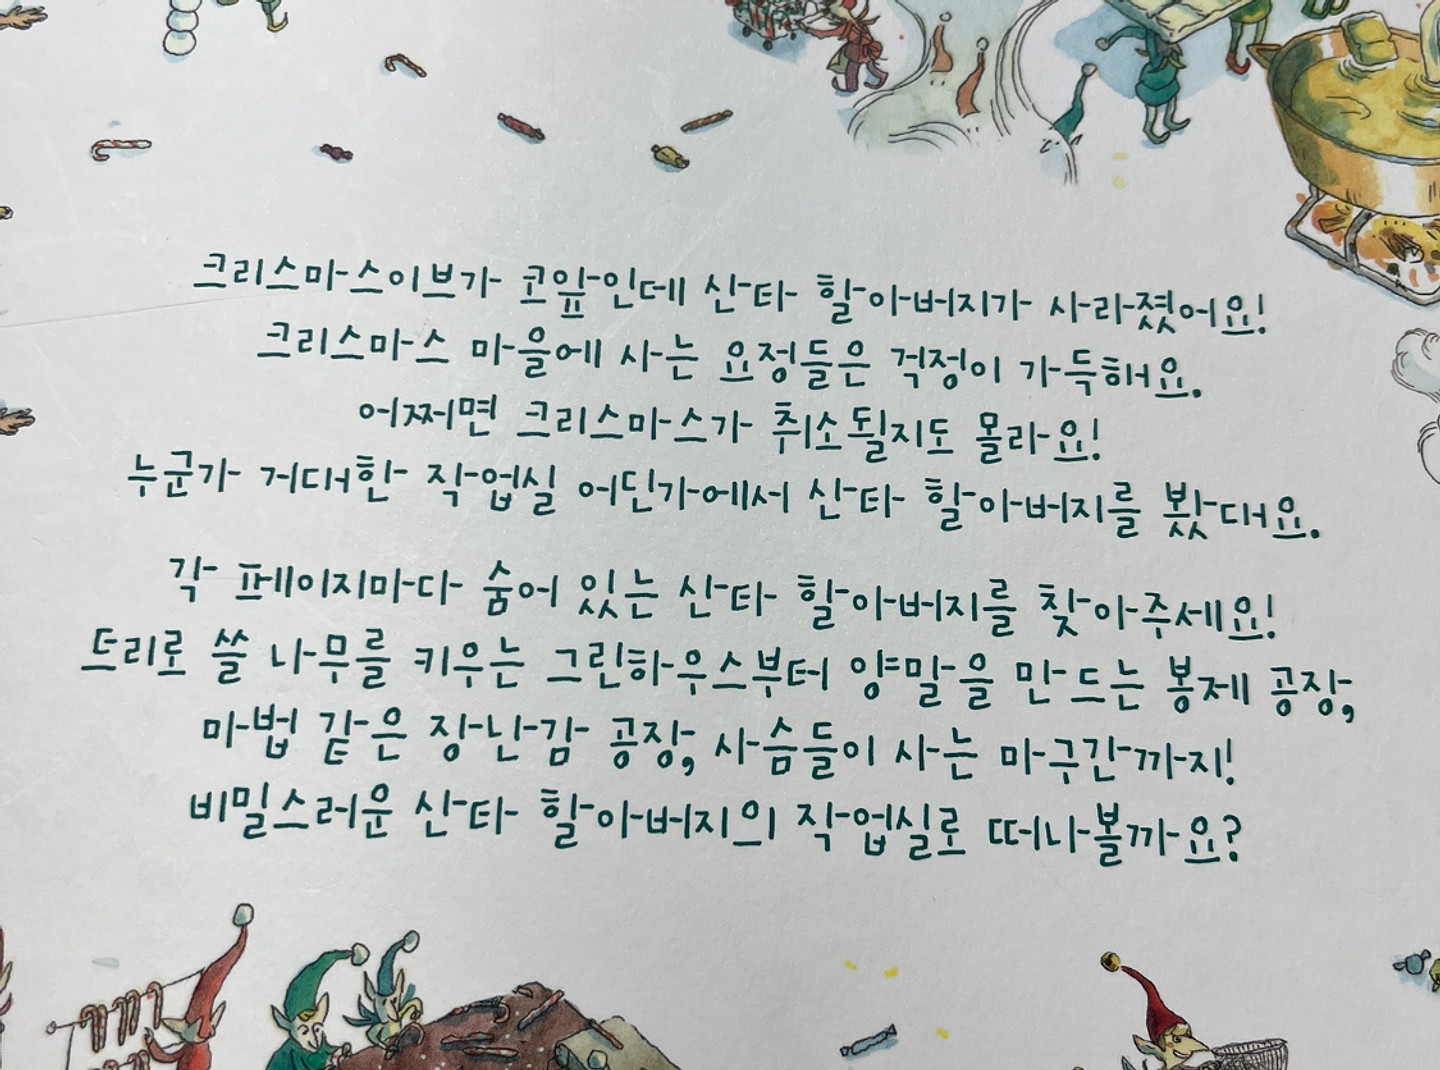 크리스마스이브가 코앞인데 산타 할아버지가 사라졌어요!
크리스마스 마을에 사는 요정들은 걱정이 가득해요.
어쩌면 크리스마스가 취소될지도 몰라요!
누군가 거대한 작업실 어딘가에서 산타 할아버지를 봤대요.
각 페이지마다 숨어 있는 산타 할아버지를 찾아주세요!
트리로 쓸 나무를 키우는 그린하우스부터 양말을 만드는 봉제 공장,
마법 같은 장난감 공장, 사슴들이 사는 마구간까지!
비밀스러운 산타 할아버지의 작업실로 떠나볼까요?